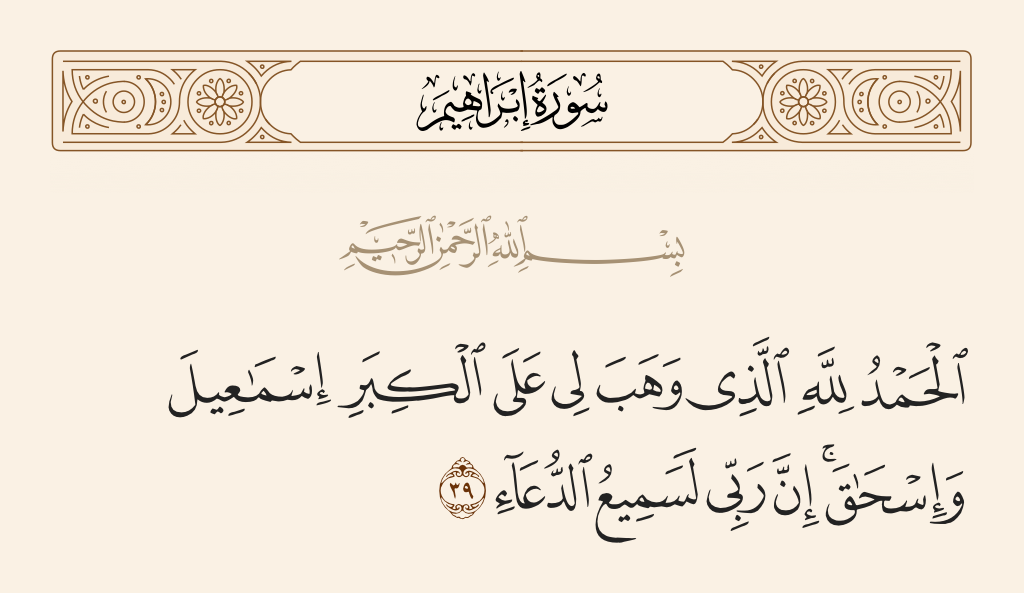 سُورَةُ إِبْرَاهِيمَ
بِسْمِ ٱللَّهِ ٱلرَّحْمَٰنِ ٱلرَّحِيمِ
ٱلْحَمْدُ لِلَّهِ ٱلَّذِى وَهَبَ لِى عَلَى ٱلْكِبَرِ إِسْمَٰعِيلَ
وَإِسْحَٰقَ ۚ إِنَّ رَبِّى لَسَمِيعُ ٱلدُّعَآءِ ٣٩